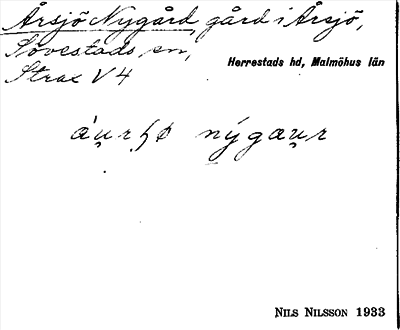 Årsjö Nygård, gård i Årsjö,
Sövestads sn,
Strax V 4
Herrestads hd, Malmöhus län
nýgæu̯r
NILS NILSSON 1933